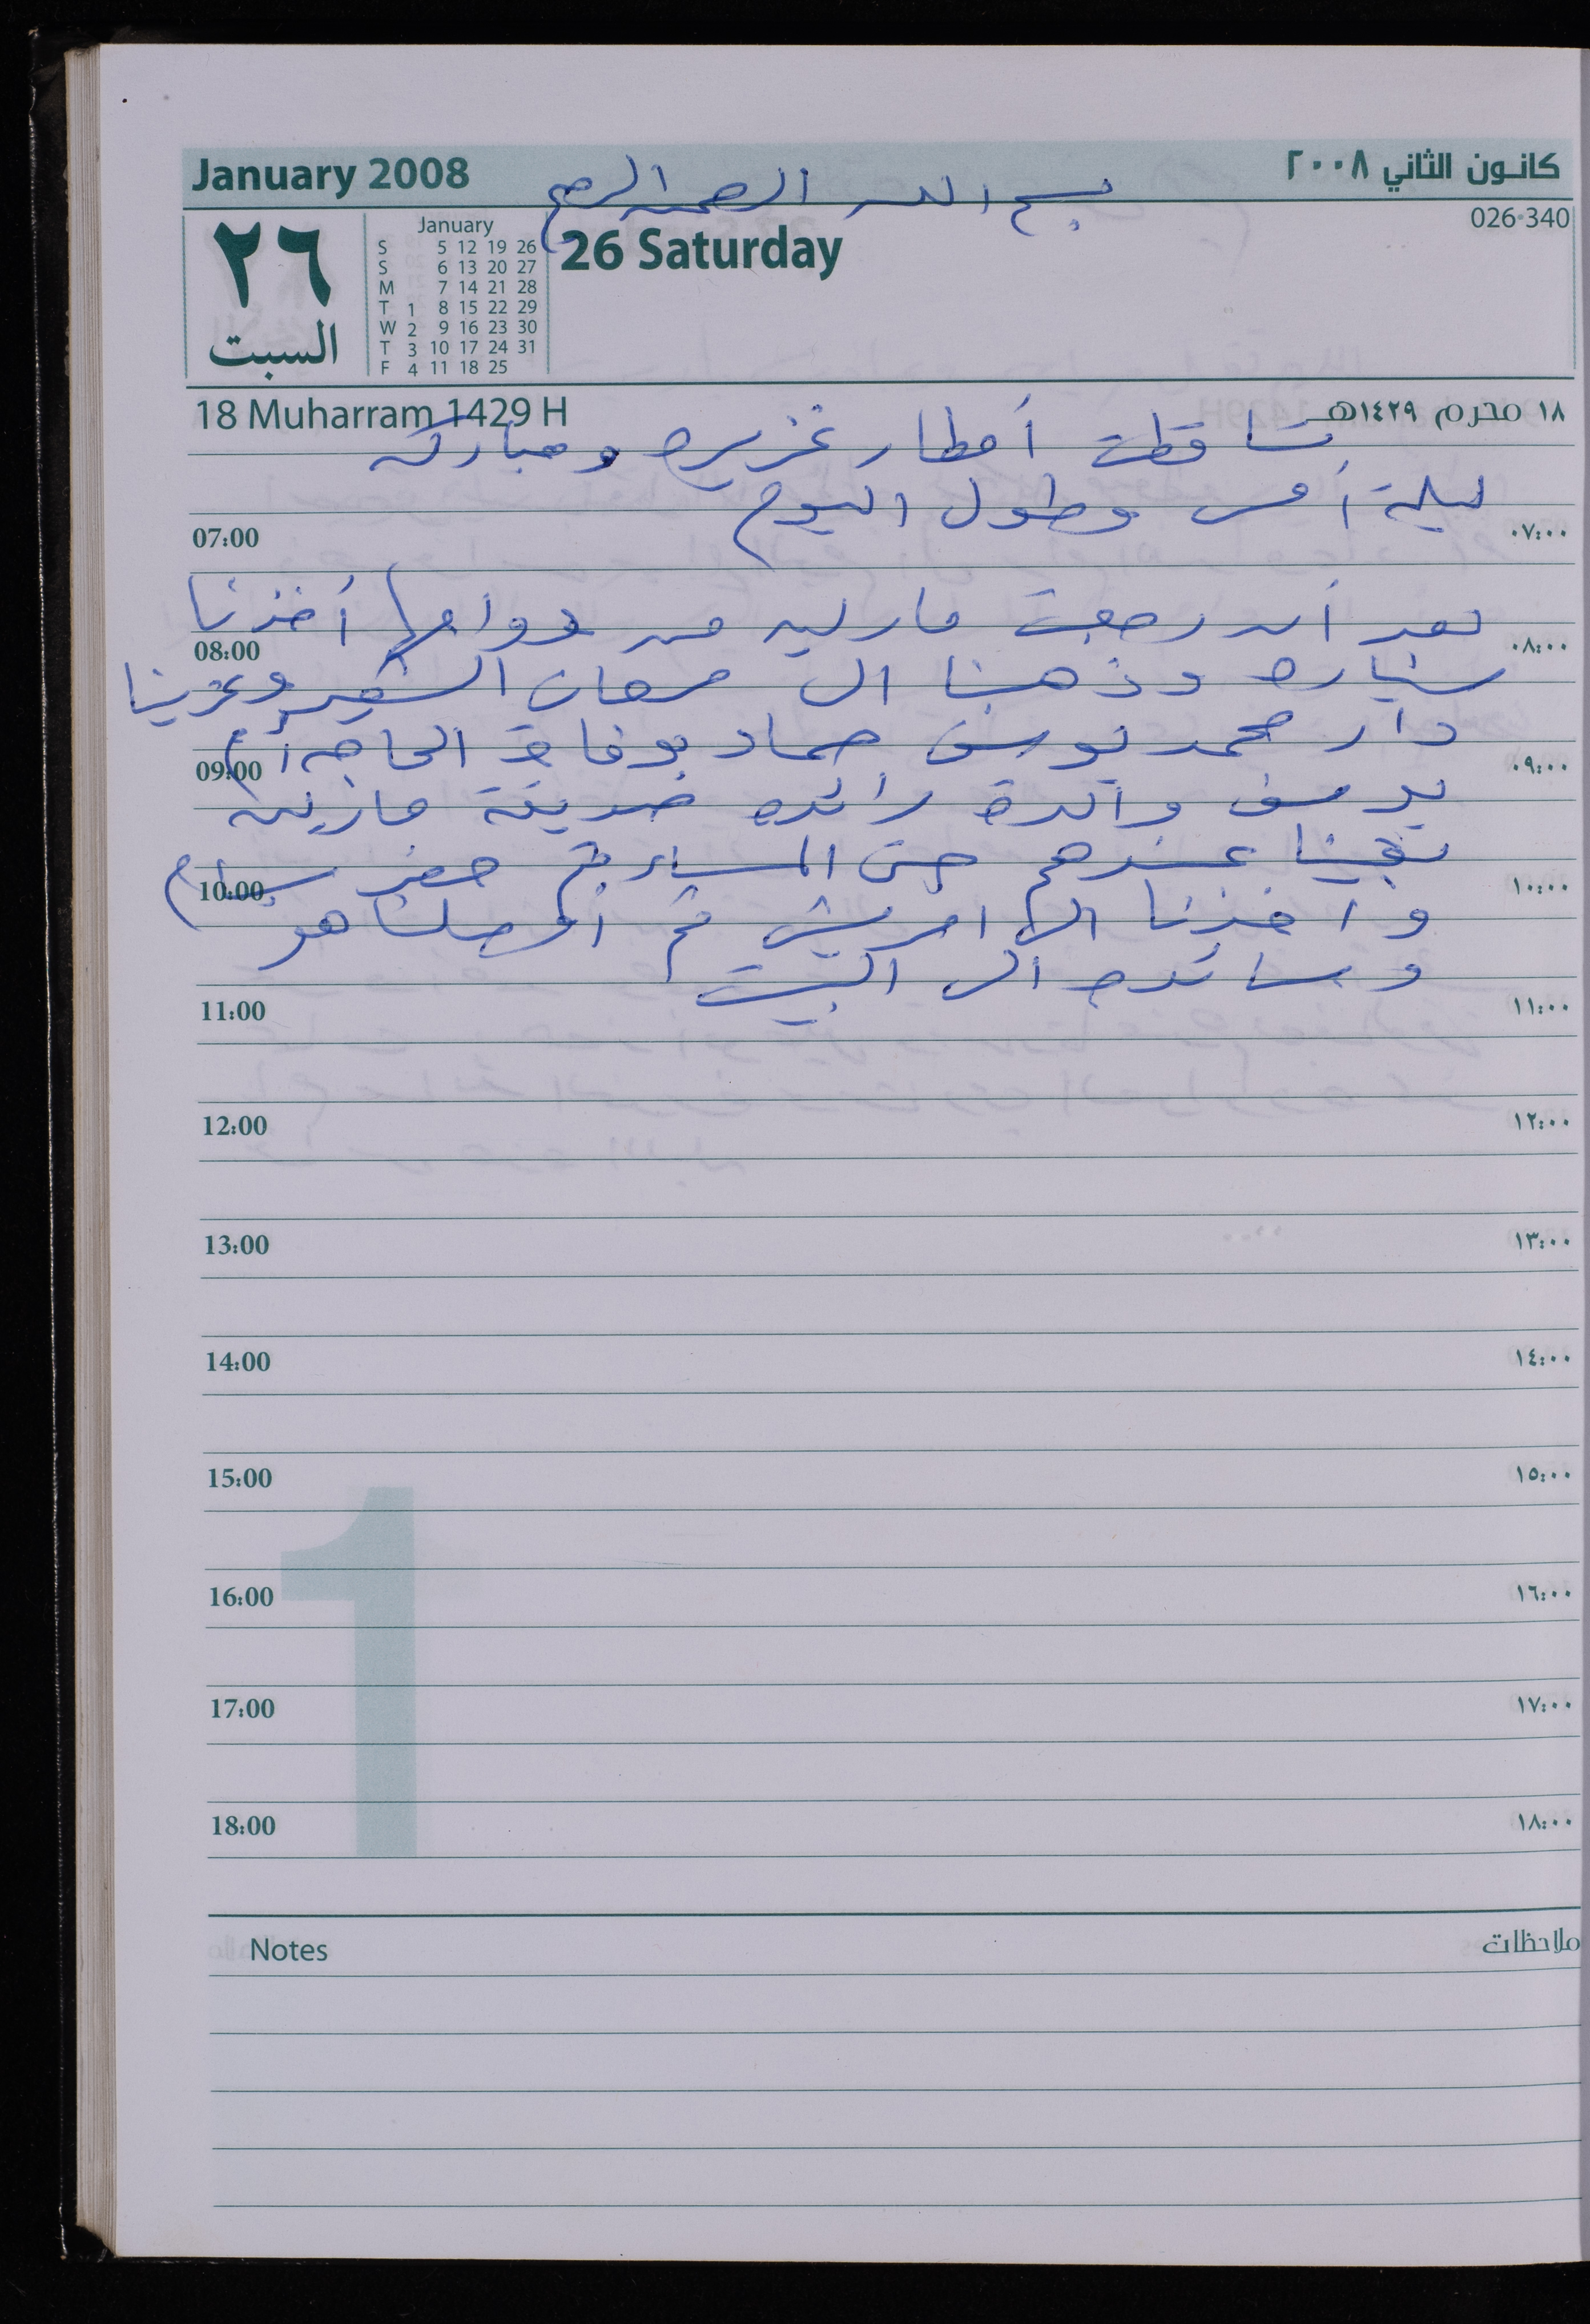 January 2008
كانون الثاني ٢٠٠٨
بسم الله الرحمن الرحيم
026-340
٢٦
السبت
January
S 5 12 19 26
S 6 13 20 27
M 7 14 21 28
T 1 8 15 22 29
W 2 9 16 23 30
T 3 10 17 24 31
F 4 11 18 25
26 Saturday
18 Muharram 1429 H
١٨ محرم ١٤٢٩هـ
تساقطت أمطار غزيره ومباركه
ليلة أمس وطول اليوم
07:00 ٠٧:٠٠
بعد أن رجعت مارلين من دوامها أخذنا
08:00 ٠٨:٠٠
سياره وذهبنا الى وعزينا
دار محمد يوسف حماد بوفاة الحاجه أم
09:00 ٠٩:٠٠
يوسف والدة رائده صديقة مارلين
بقينا عندهم حتى المساء ثم حضر سلام
10:00 ١٠:٠٠
وأخذنا الى ثم أوصلنا هو
وسائده الى البيت
11:00 ١١:٠٠
12:00 ١٢:٠٠
13:00 ١٣:٠٠
14:00 ١٤:٠٠
15:00 ١٥:٠٠
16:00 ١٦:٠٠
17:00 ١٧:٠٠
18:00 ١٨:٠٠
1
Notes
ملاحظات